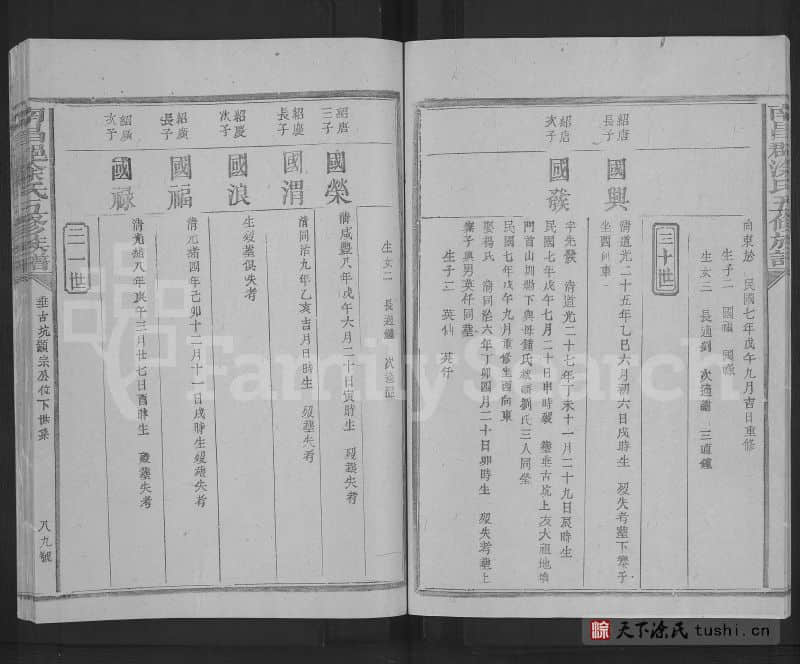 南昌郡涂氏五修族譜
向東於 民國七年戊午九月吉日重修
生子二 國福 國祿
生女三 長適劉 次適謝 三適鍾
三十世
紹唐長子
國興
清道光二十五年乙巳六月初六日戌時生 歿失考墓下寮子
坐酉向東
紹唐次子
國發
字先發 清道光二十七年丁未十一月二十九日辰時生
民國七年戊午七月二十日申時歿 墓垂古坑上友大祖地墳
門首山圳塝下與母鍾氏 劉氏三人同塋
民國七年戊午九月重修坐酉向東
娶楊氏 清同治六年丁卯四月二十日卯時生 歿失考墓上
寮子與男英仟同墓
生子二 英仙 英仟
生女二 長適鍾 次適
紹唐三子
國榮
清咸豐八年戊午六月二十日寅時生 歿墓失考
紹慶長子
國渭
清同治九年乙亥吉月日時生 歿墓失考
紹慶次子
國浪
生歿墓俱失考
紹廣長子
國福
清光緒四年己卯十二月十一日戌時生歿墓失考
紹廣次子
國祿
清光緒八年庚午三月廿七日酉時生 歿墓失考
三一世
南昌郡涂氏五修族譜
垂古坑顯宗公位下世系
八九號
FamilySearch
涂 天下涂氏 tushi.cn